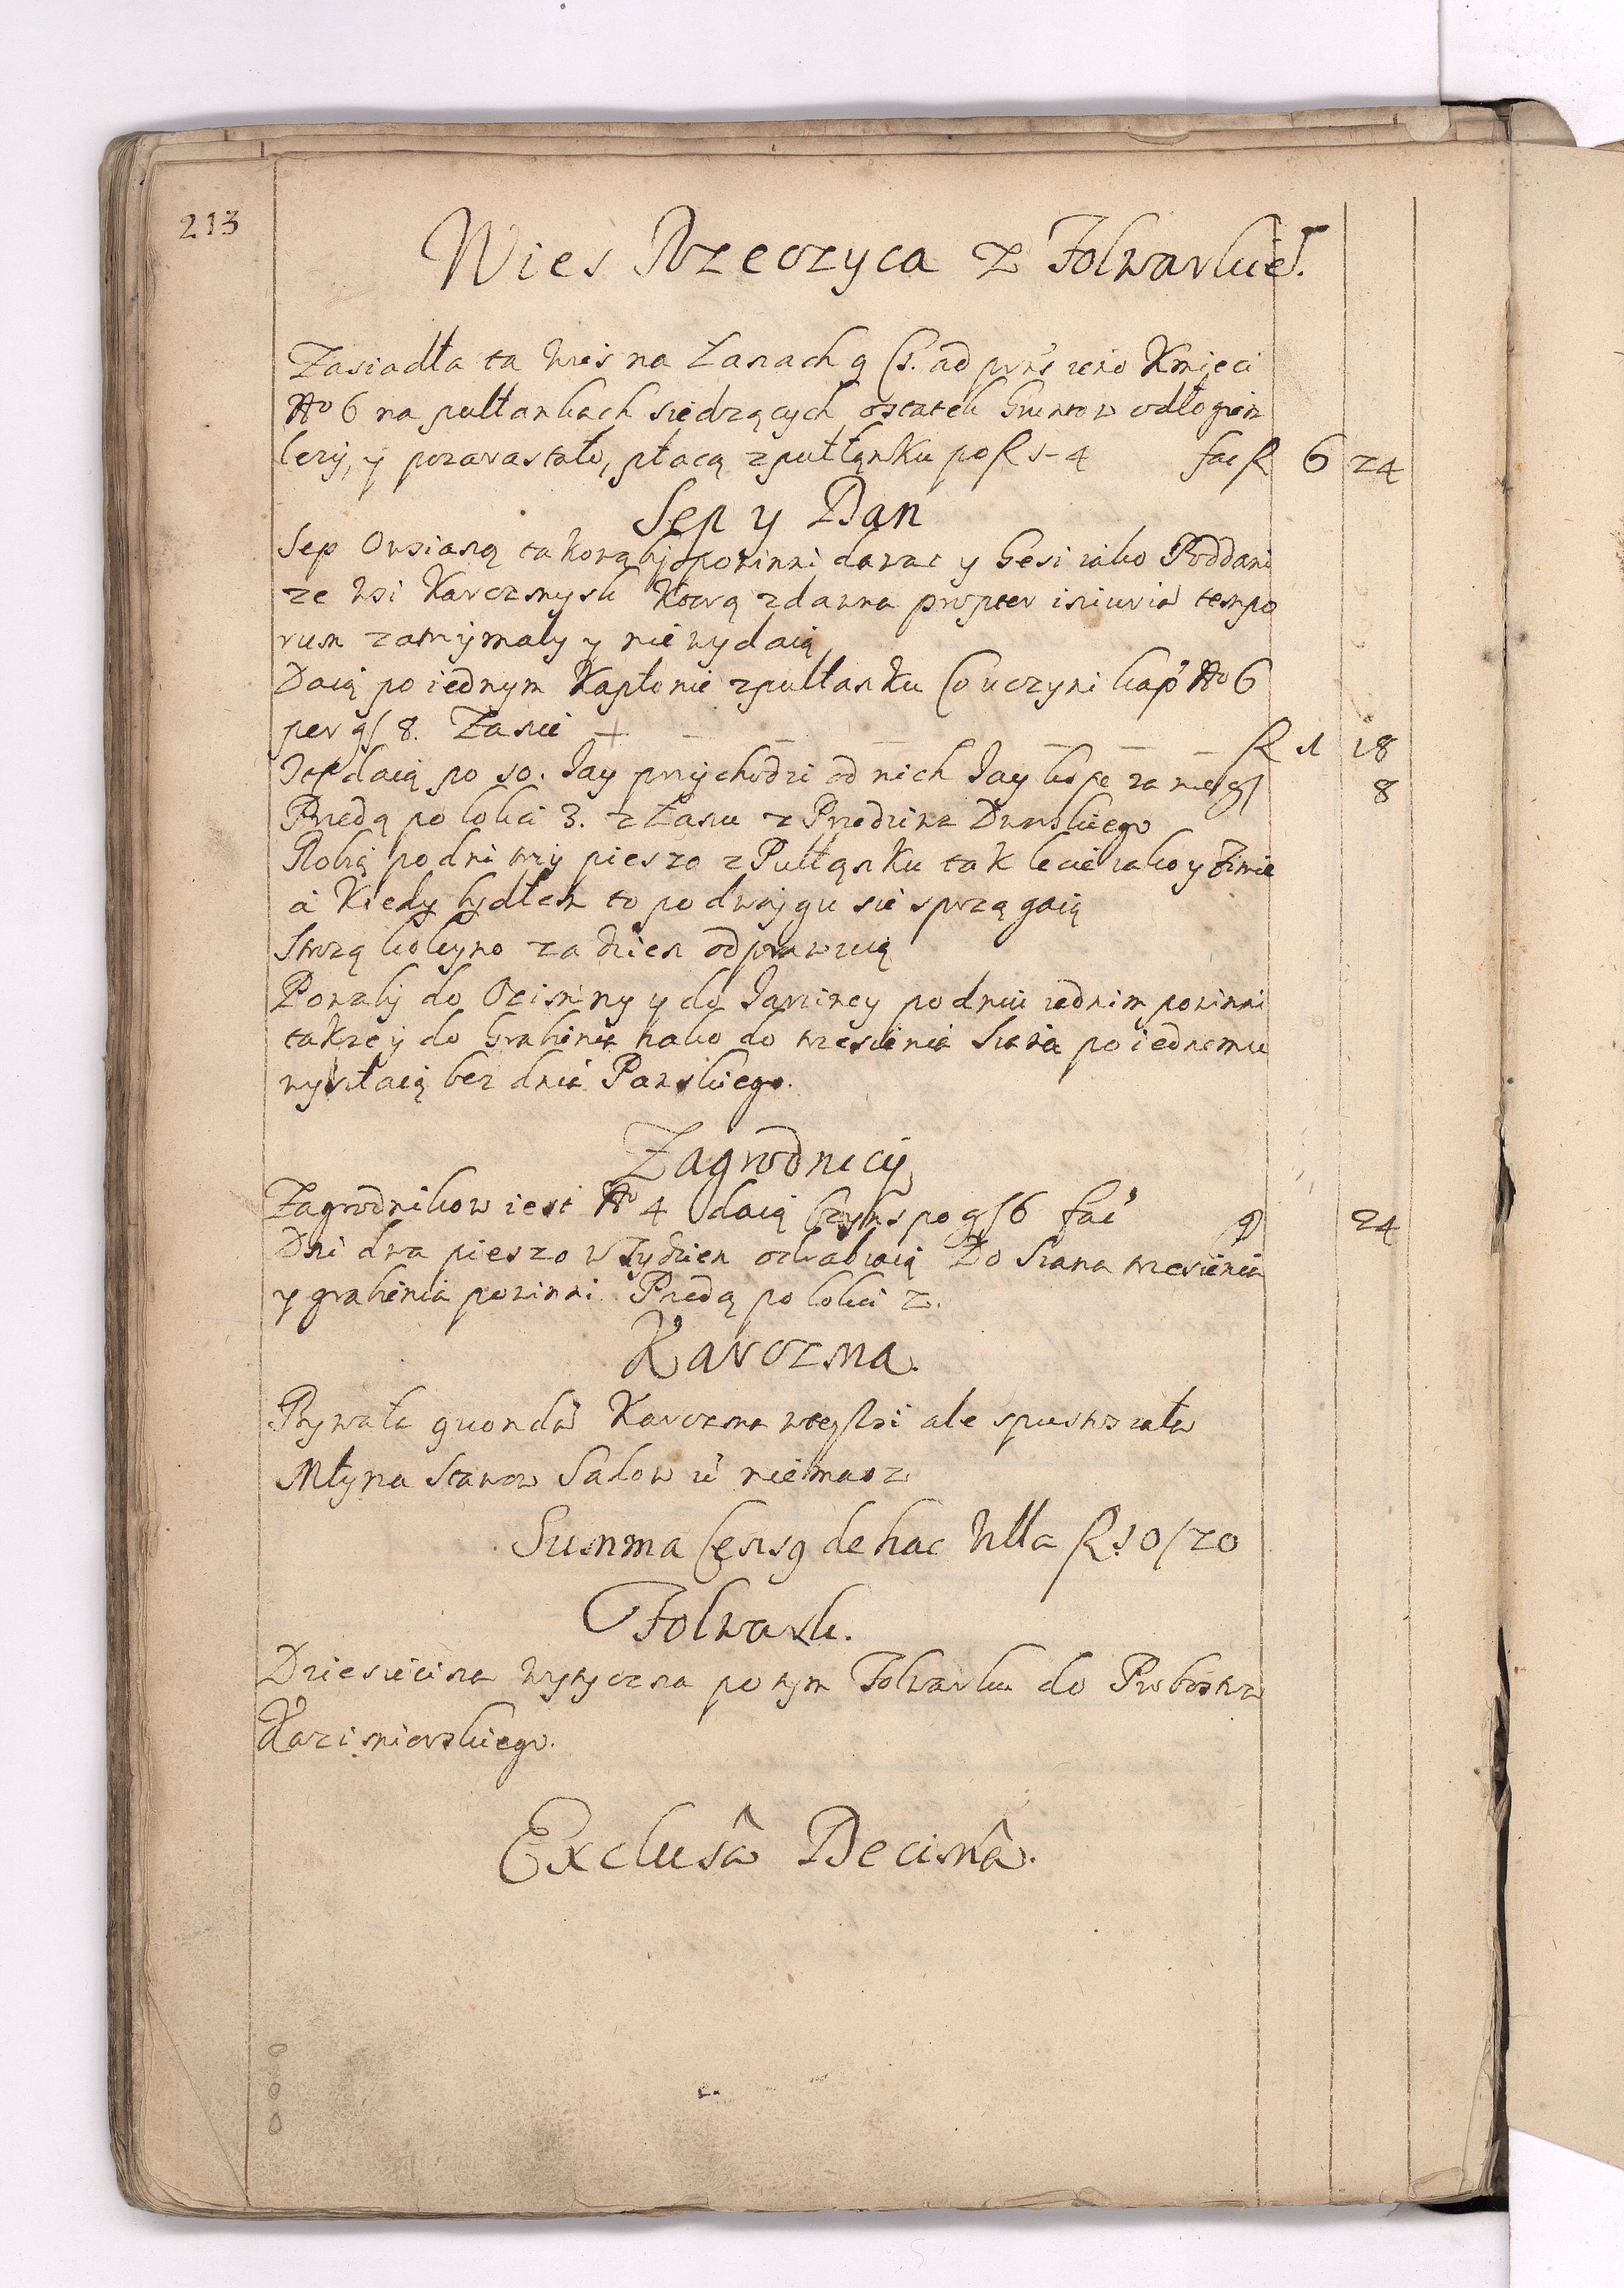 213
Wies Rzeczyca z Folwarkiē.
Zasiadła ta wieś na Łanach 9 ad pñs Kmieci
Nro 6 na pułłankach siedzących, ostatek Gruntow odłogiem
lezy, y pozarastało, płacą z pułłanku po fl 1-4 fac fl 6 24
Sep y Dan
Sep Owsianą takową powinni dawac y Gesi iako Poddani
ze wsi Karczmysk Ktorą zdawna propter iniuriā tempo
rum zatrzymały y nie wydaią
Daią po iednym Kapłonie z pułłanku Co uczyni kap Nro 6
per gſ 8. Zanie fl 1 18
Itē daią po 10. Jay przychodzi od nich Jay kope za nie gſ 8
Przedą po lokci 3. z Łanu z Przedziwa Dworskiego
Robią po dni trzy pieszo z Pułłanku tak lecie iako y Zimie
a Kiedy bydłem to po dwaygu sie sprzągaią
Strozą koleyno za dzien odprawuią
Powaby do Oziminy y do Jarziney po dniu iednim powinni
takze y do Grabienia iako do trzesienia Siana po iednemu
wysyłaią bez dnia Panskiego.
Zagrodnicy
Zagrodnikow iest Nro 4 daią Czynsz po gſ 6 fac gſ 24
Dni dwa pieszo w Tydzien odrabiaią Do Siana trzesienia
y grabienia powinni Przedą po lokci 2.
Karczma.
Bywała quondā Karczma w tey Wsi ale spustoszała
Młyna Stawow Sadow niemasz
Summa Censq de hac Villa fl 10/20
Folwark.
Dziesiecina Wytyczna po tym Folwarku do Proboszcza
Kazimierskiego.
Exclusâ Decimâ.